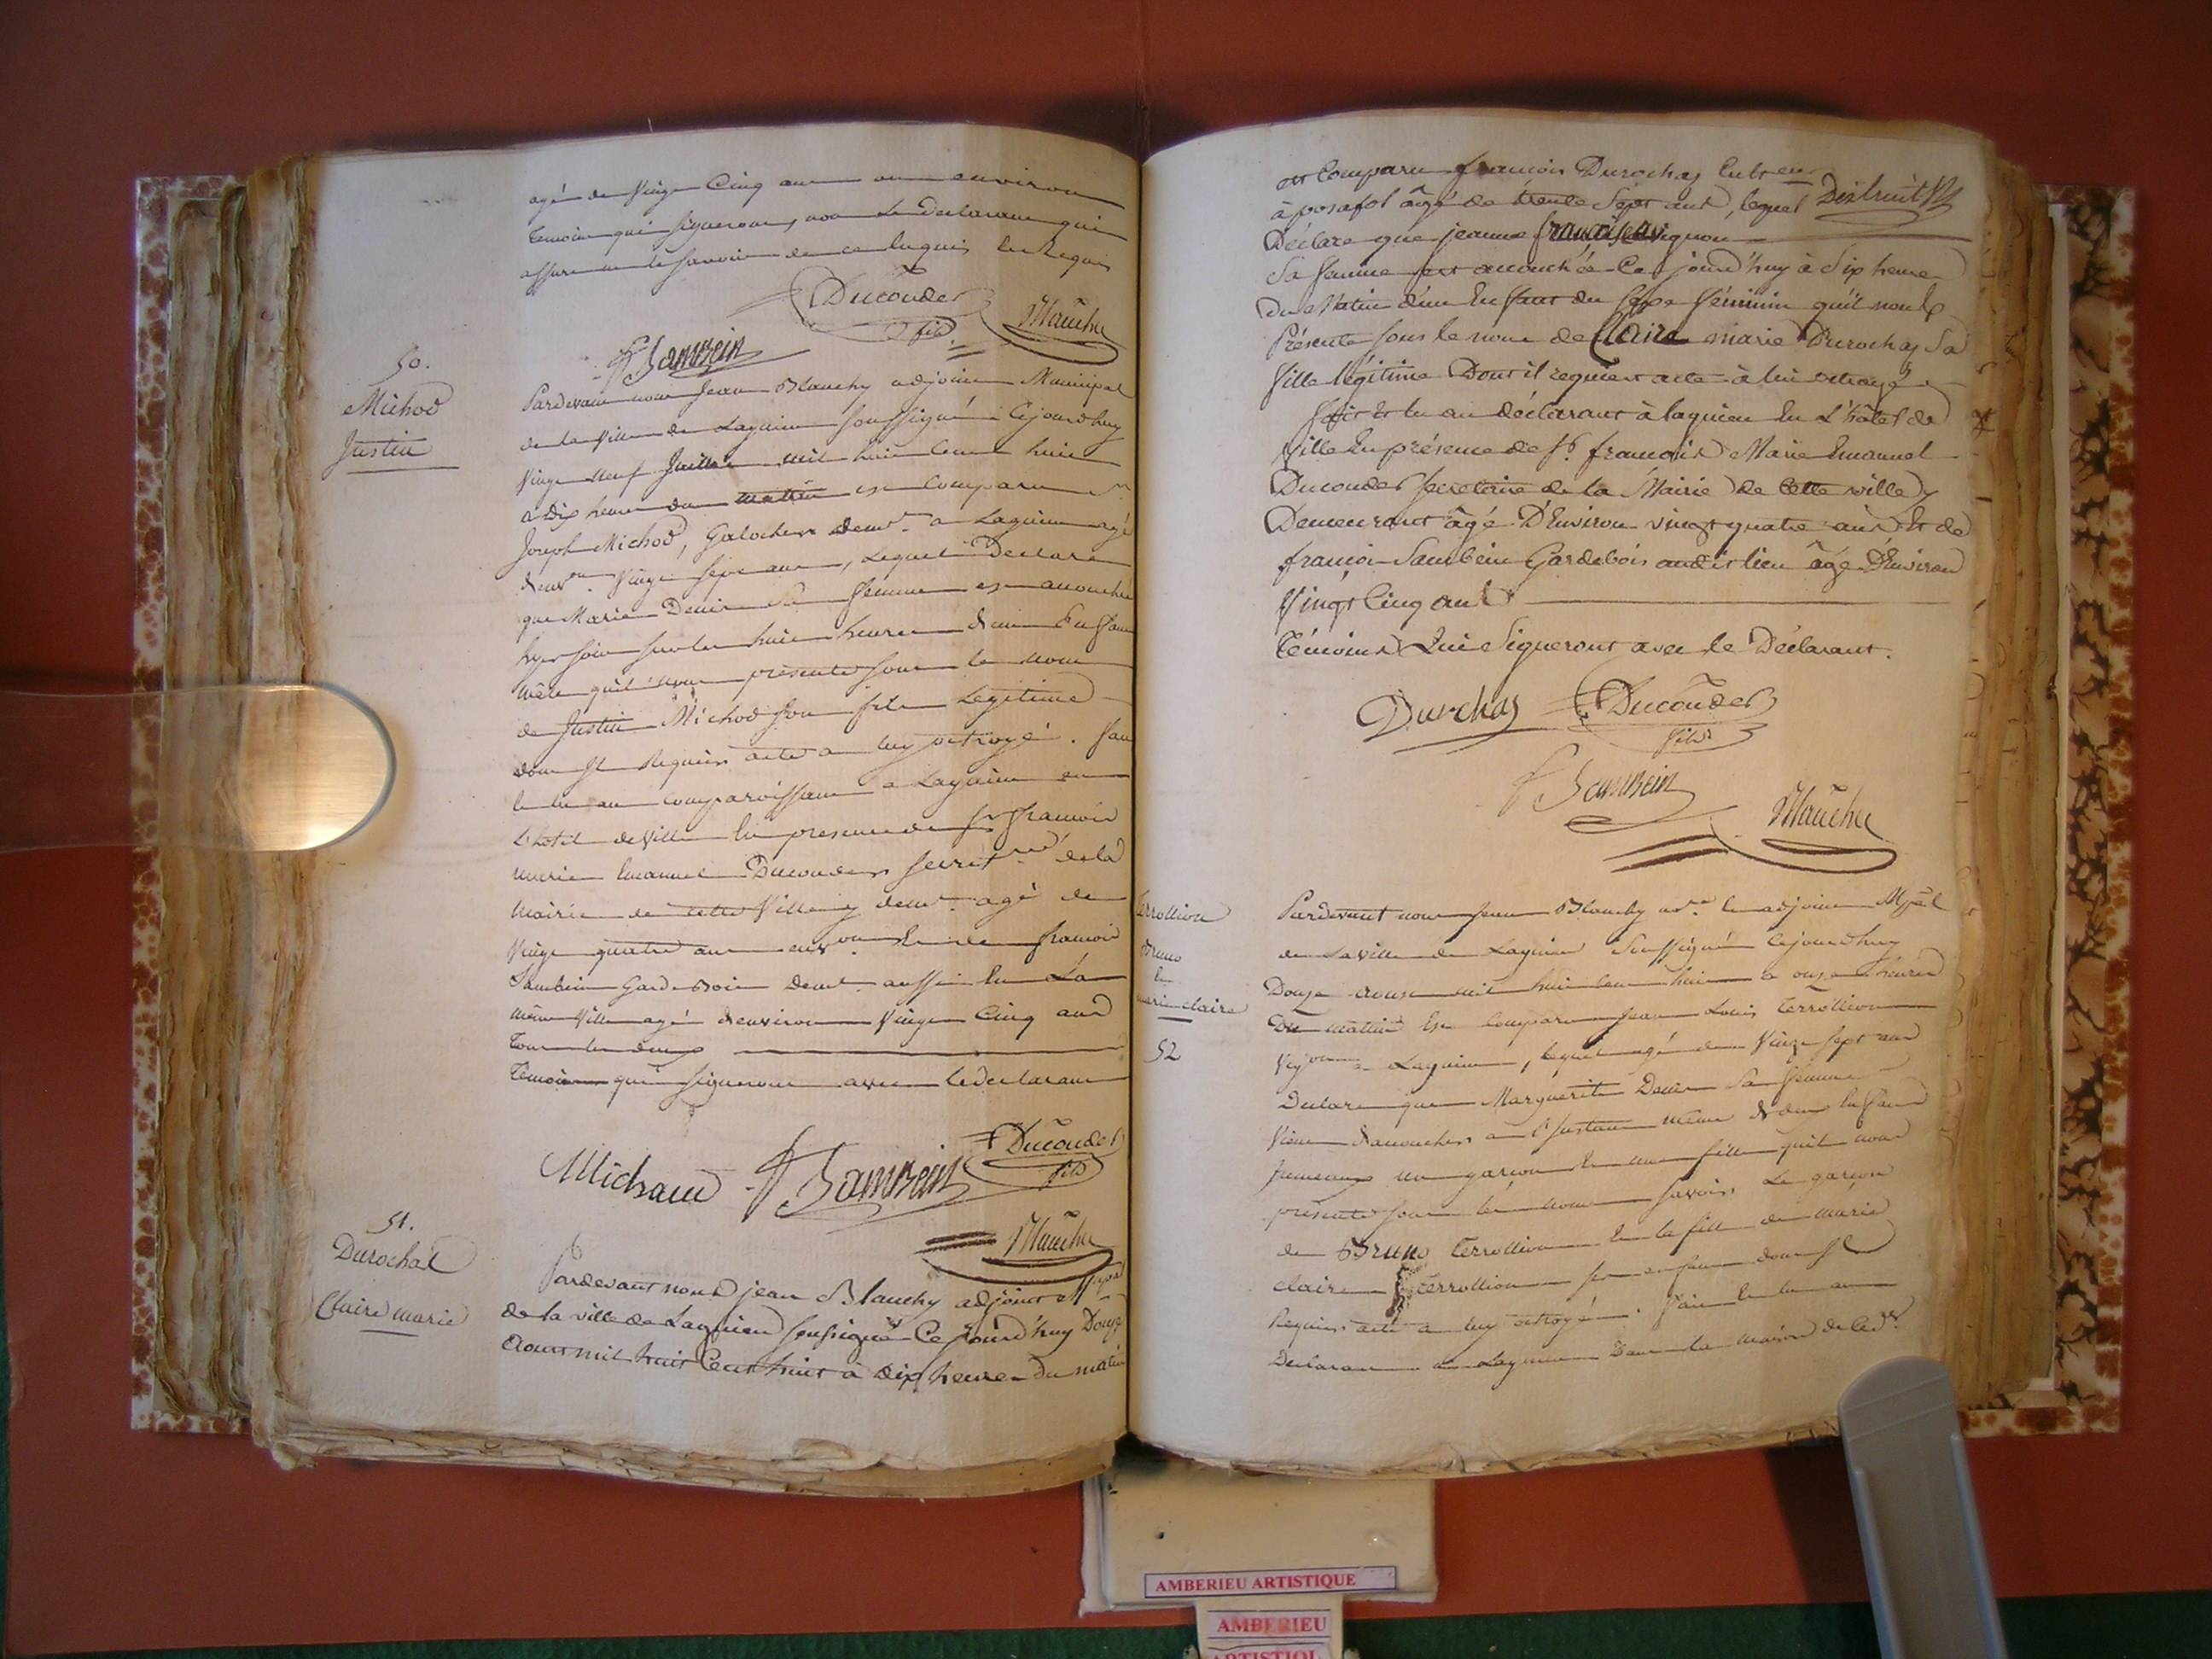 agé de Vingt Cinq ans ou environ
temoins qui signeront, non le Declarant qui
assure ne le savoir de ce enquis et Requis
Ducouder
fils
Mauchu
F Sambein
50.
Michod
Justin
Pardevant nous Jean Blanchy adjoint Municipal
de la Ville de Lagnieu soussigné Cejourdhuy
Vingt Neuf Juillet mil huit Cent huit
a Dix heures du matin est Comparu Sr
Joseph Michod, Galochier demt. a Lagnieu agé
d'envon. Vingt sept ans, Lequel Declare
que Marie Denis Sa femme est accouchée
hyer soir sur les huit heures d'un Enfant
mâle qu'il nous presente sous le nom
de Justin Michod son fils Legitime
dont Il Requiert acte a luy octroyé. fait
et lu au comparoissant a Lagnieu en
L'hotel de Ville En presence de Sr francois
marie Emanuel Ducouder secretre de la
Mairie de cette Ville y demt. agé de
Vingt quatre ans envon. Et de francois
Sambein Garde Bois demt. aussi En La
même Ville agé d'environ Vingt Cinq ans
Tous les deux
Temoins qui signeront avec le declarant
Michaud
F Sambein
F Ducouder
fils
Mauchu
51.
Durochat
Claire marie
Pardevant nous jean Blanchy adjoint Mpal
de la ville de Lagnieu soussigné Cejourd'huy Douze
Aoust mil huit Cent huit à dix heures du matin
est Comparu francois Durochas Cultr en
Distruit
à posafol âgé de trente Sept ans, lequel
Déclare que jeanne françoise avignon
Sa femme est accouchée Cejourd'huy à Six heures
Du Matin d'un Enfant du Sexe féminin qu'il nous
Présente sous le nom de Claire marie Durochas Sa
fille légitime Dont il requiert acte à lui octroyé
fait et lu au déclarant à lagnieu En L'hôtel de
Ville En présence de Sr. francois Marie Emanuel
Ducouder Secretaire de la Mairie de Cette ville y
Demeurant âgé D'Environ vingt quatre ans Et de
francois Sambein Garde bois audit lieu âgé D'Environ
Vingt Cinq ans
Témoins Qui Signeront avec le Déclarant.
Durchas
F Ducouder
fils
F Sambein
Mauchu
Terrollion
Bruno
et
marie claire
52
Pardevant nous Jean Blanchy nre. et adjoint Mpal
de La Ville de Lagnieu Soussigné Cejourdhuy
Douze Aoust mil huit Cent huit a onze heures
Du matin Est Comparu Jean Louis Terrollion
a Lagnieu, lequel agé de Vingt sept ans
Declare que Marguerite Denis Sa femme
Vient d'accoucher a l'Instant même de deux Enfans
Jumeaux un garcon Et une fille qu'il nous
présente sous les noms savoir Le garçon
de Bruno Terrollion Et la fille de marie
claire Terrollion ses enfans dont Il
Requiert acte a luy octroyé. fait Et lu au
Declarant a Lagnieu Dans la Maison de
AMBERIEU ARTISTIQUE
AMBERIEU